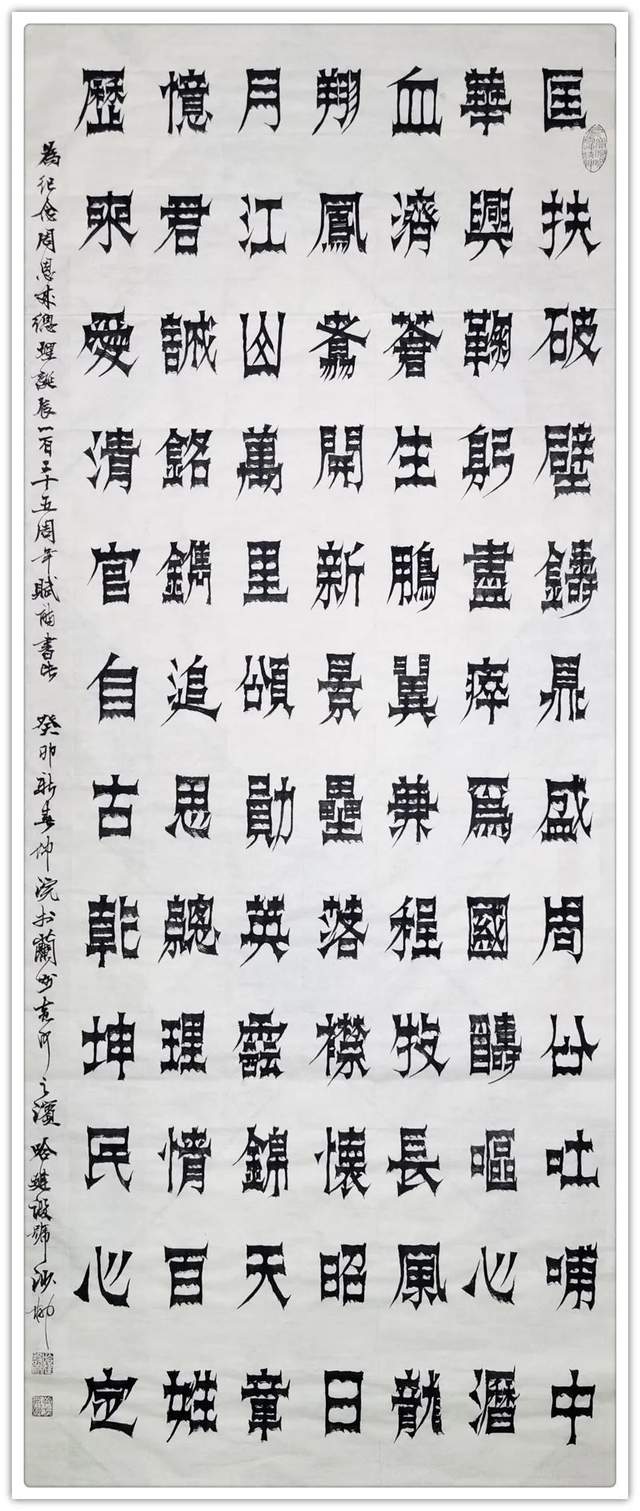 匡扶破壁鑄鼎盛周公吐哺中
華興鞠躬盡瘁爲國醻嘔心瀝
血濟蒼生鵬翼兼程牧長風龍
翔鳳翥開新景壘落襟懷昭日
月江山萬里頌勛英雲錦天章
憶君誠銘鐫追思總理情百姓
歷來愛清官自古乾坤民心定
爲紀念周恩來總理誕辰一百二十五周年賦詞書此 癸卯新春仲浣於蘭州黃河之濱 哈建設號沙柳